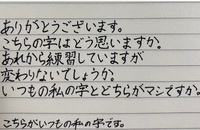 ありがとうございます。
こちらの字はどう思いますか。
あれから練習していますが
変わりないでしょうか。
いつもの私の字とどちらがマシですか。
こちらがいつもの私の字です。